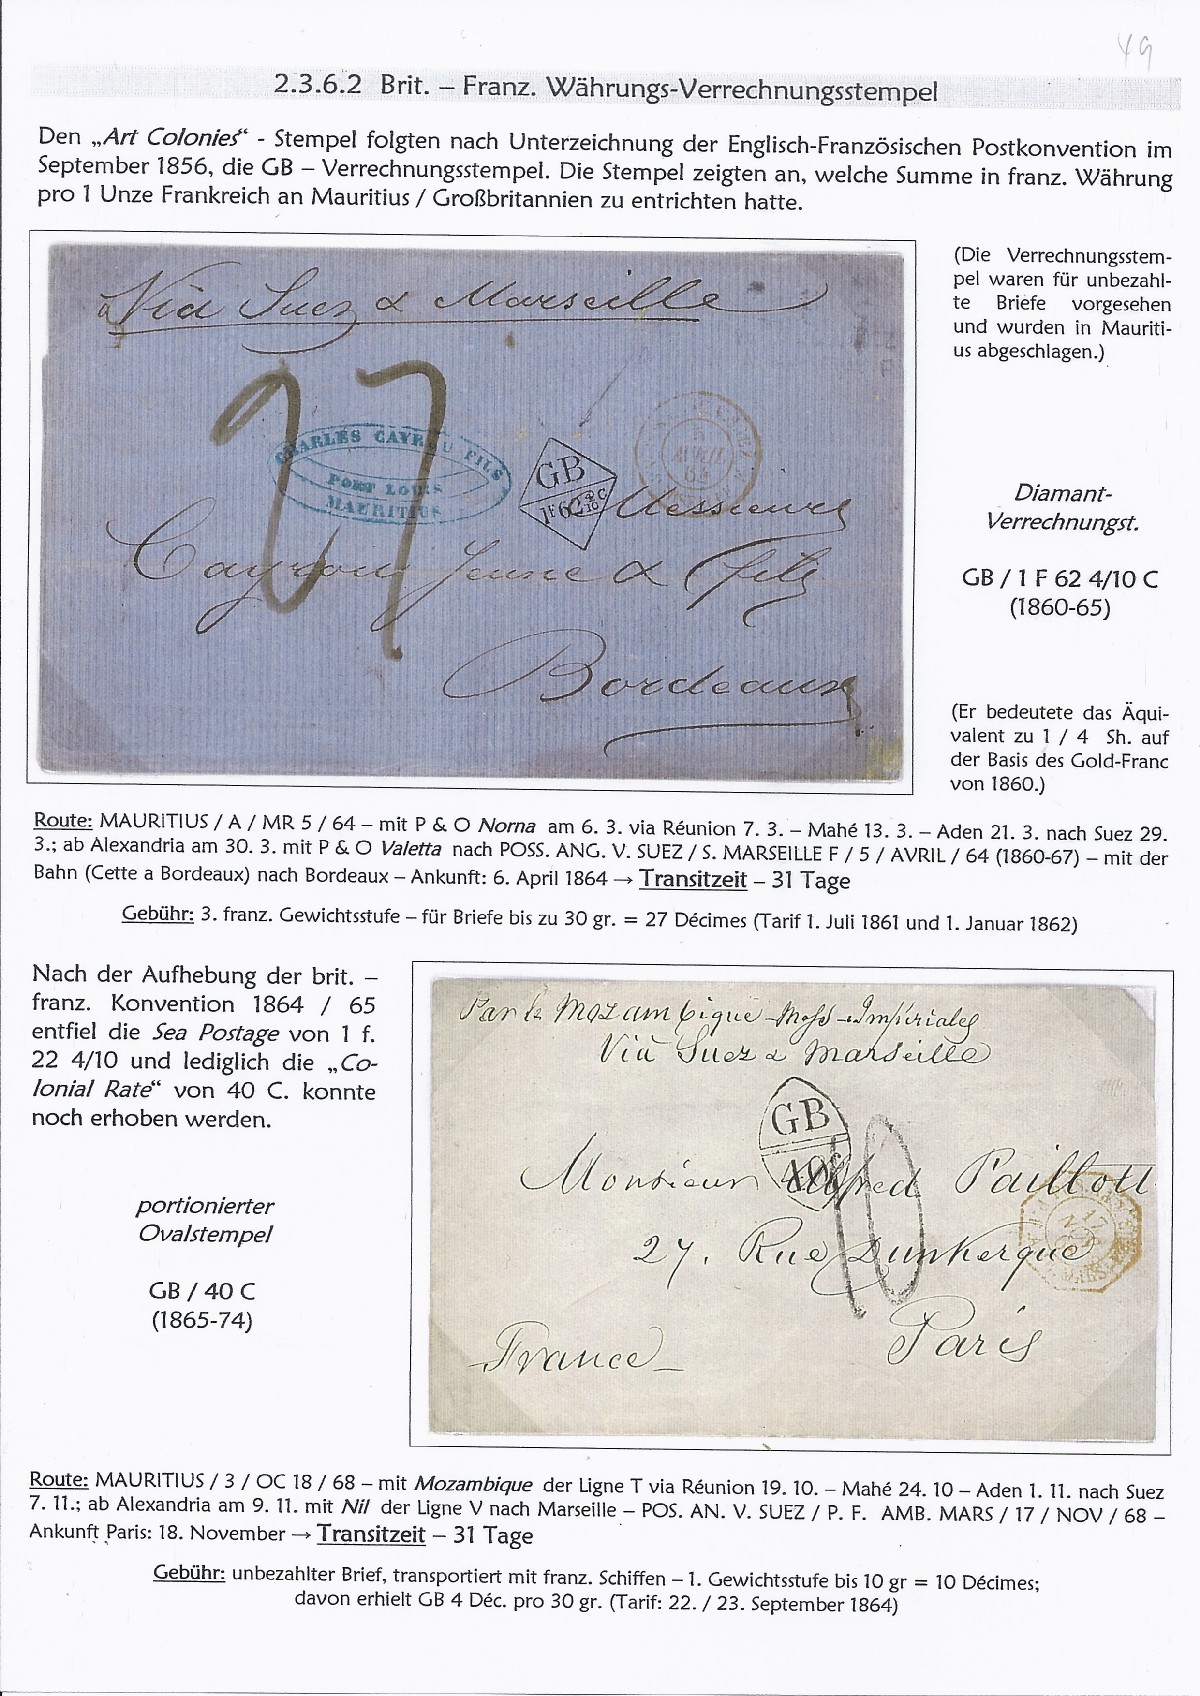 49
2.3.6.2 Brit. – Franz. Währungs-Verrechnungsstempel
Den „Art Colonies“ - Stempel folgten nach Unterzeichnung der Englisch-Französischen Postkonvention im
September 1856, die GB – Verrechnungsstempel. Die Stempel zeigten an, welche Summe in franz. Währung
pro 1 Unze Frankreich an Mauritius / Großbritannien zu entrichten hatte.
Via Suez & Marseille
27
CHARLES CAYROU FILS
PORT LOUIS
MAURITIUS
GB
1F62 4/10 C
5
AVRIL
64
Messieurs
Cayrou Jeune & Fils
Bordeaux
(Die Verrechnungsstem-
pel waren für unbezahl-
te Briefe vorgesehen
und wurden in Mauriti-
us abgeschlagen.)
Diamant-
Verrechnungst.
GB / 1 F 62 4/10 C
(1860-65)
(Er bedeutete das Äqui-
valent zu 1 / 4 Sh. auf
der Basis des Gold-Franc
von 1860.)
Route: MAURITIUS / A / MR 5 / 64 – mit P & O Norna am 6. 3. via Réunion 7. 3. – Mahé 13. 3. – Aden 21. 3. nach Suez 29.
3.; ab Alexandria am 30. 3. mit P & O Valetta nach POSS. ANG. V. SUEZ / S. MARSEILLE F / 5 / AVRIL / 64 (1860-67) – mit der
Bahn (Cette a Bordeaux) nach Bordeaux – Ankunft: 6. April 1864 → Transitzeit – 31 Tage
Gebühr: 3. franz. Gewichtsstufe – für Briefe bis zu 30 gr. = 27 Décimes (Tarif 1. Juli 1861 und 1. Januar 1862)
Nach der Aufhebung der brit. –
franz. Konvention 1864 / 65
entfiel die Sea Postage von 1 f.
22 4/10 und lediglich die „Co-
lonial Rate“ von 40 C. konnte
noch erhoben werden.
portionierter
Ovalstempel
GB / 40 C
(1865-74)
Par le Mozambique Mess-Impériales
Via Suez & Marseille
GB
40c
10
Monsieur Alfred Paillott
27. Rue Dunkerque
Paris
France
17
NOV
Route: MAURITIUS / 3 / OC 18 / 68 – mit Mozambique der Ligne T via Réunion 19. 10. – Mahé 24. 10 – Aden 1. 11. nach Suez
7. 11.; ab Alexandria am 9. 11. mit Nil der Ligne V nach Marseille – POS. AN. V. SUEZ / P. F. AMB. MARS / 17 / NOV / 68 –
Ankunft Paris: 18. November → Transitzeit – 31 Tage
Gebühr: unbezahlter Brief, transportiert mit franz. Schiffen – 1. Gewichtsstufe bis 10 gr = 10 Décimes;
davon erhielt GB 4 Déc. pro 30 gr. (Tarif: 22. / 23. September 1864)